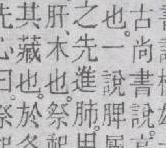 古尚書說
也一說脾屬
之先進肺用
肝木也祭
其藏也於冬
先心曰祭